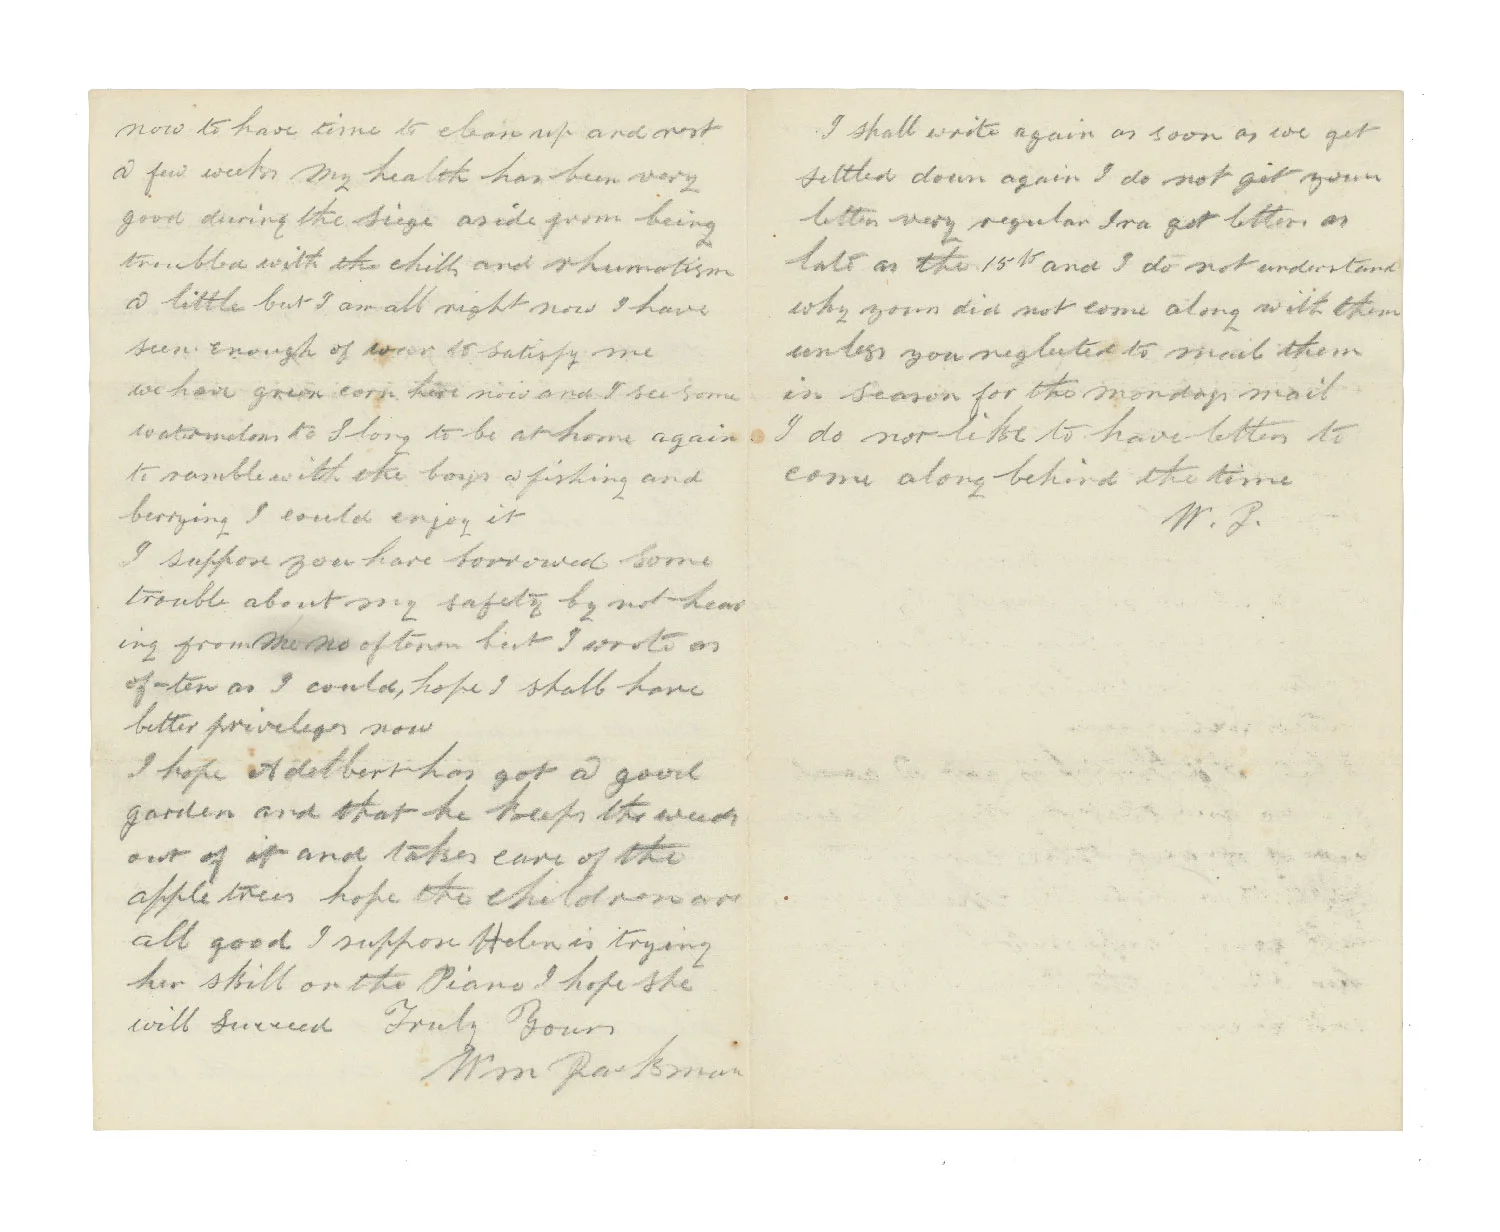 now to have time to clean up and rest
a few weeks My health has been very
good during the siege aside from being
troubled with the chills and rhumatism
a little but I am all right now I have
seen enough of war to satisfy me
we have green corn here now and I see some
watermelons to I long to be at home again
to ramble with the boys a fishing and
berrying I could enjoy it
I suppose you have borrowed some
trouble about my safety by not hear
ing from me no oftener but I wrote as
of-ten as I could, hope I shall have
better priveleges now
I hope Adelbert has got a good
garden and that he keeps the weeds
out of it and takes care of the
apple trees hope the children are
all good I suppose Helen is trying
her skill on the Piano I hope she
will succeed Truly Yours
Wm Parkman
I shall write again as soon as we get
settled down again I do not get your
letters very regular Ira got letters as
late as the 15th and I do not understand
why yours did not come along with them
unless you neglected to mail them
in season for the mondays mail
I do not like to have letters to
come along behind the time
W. P.